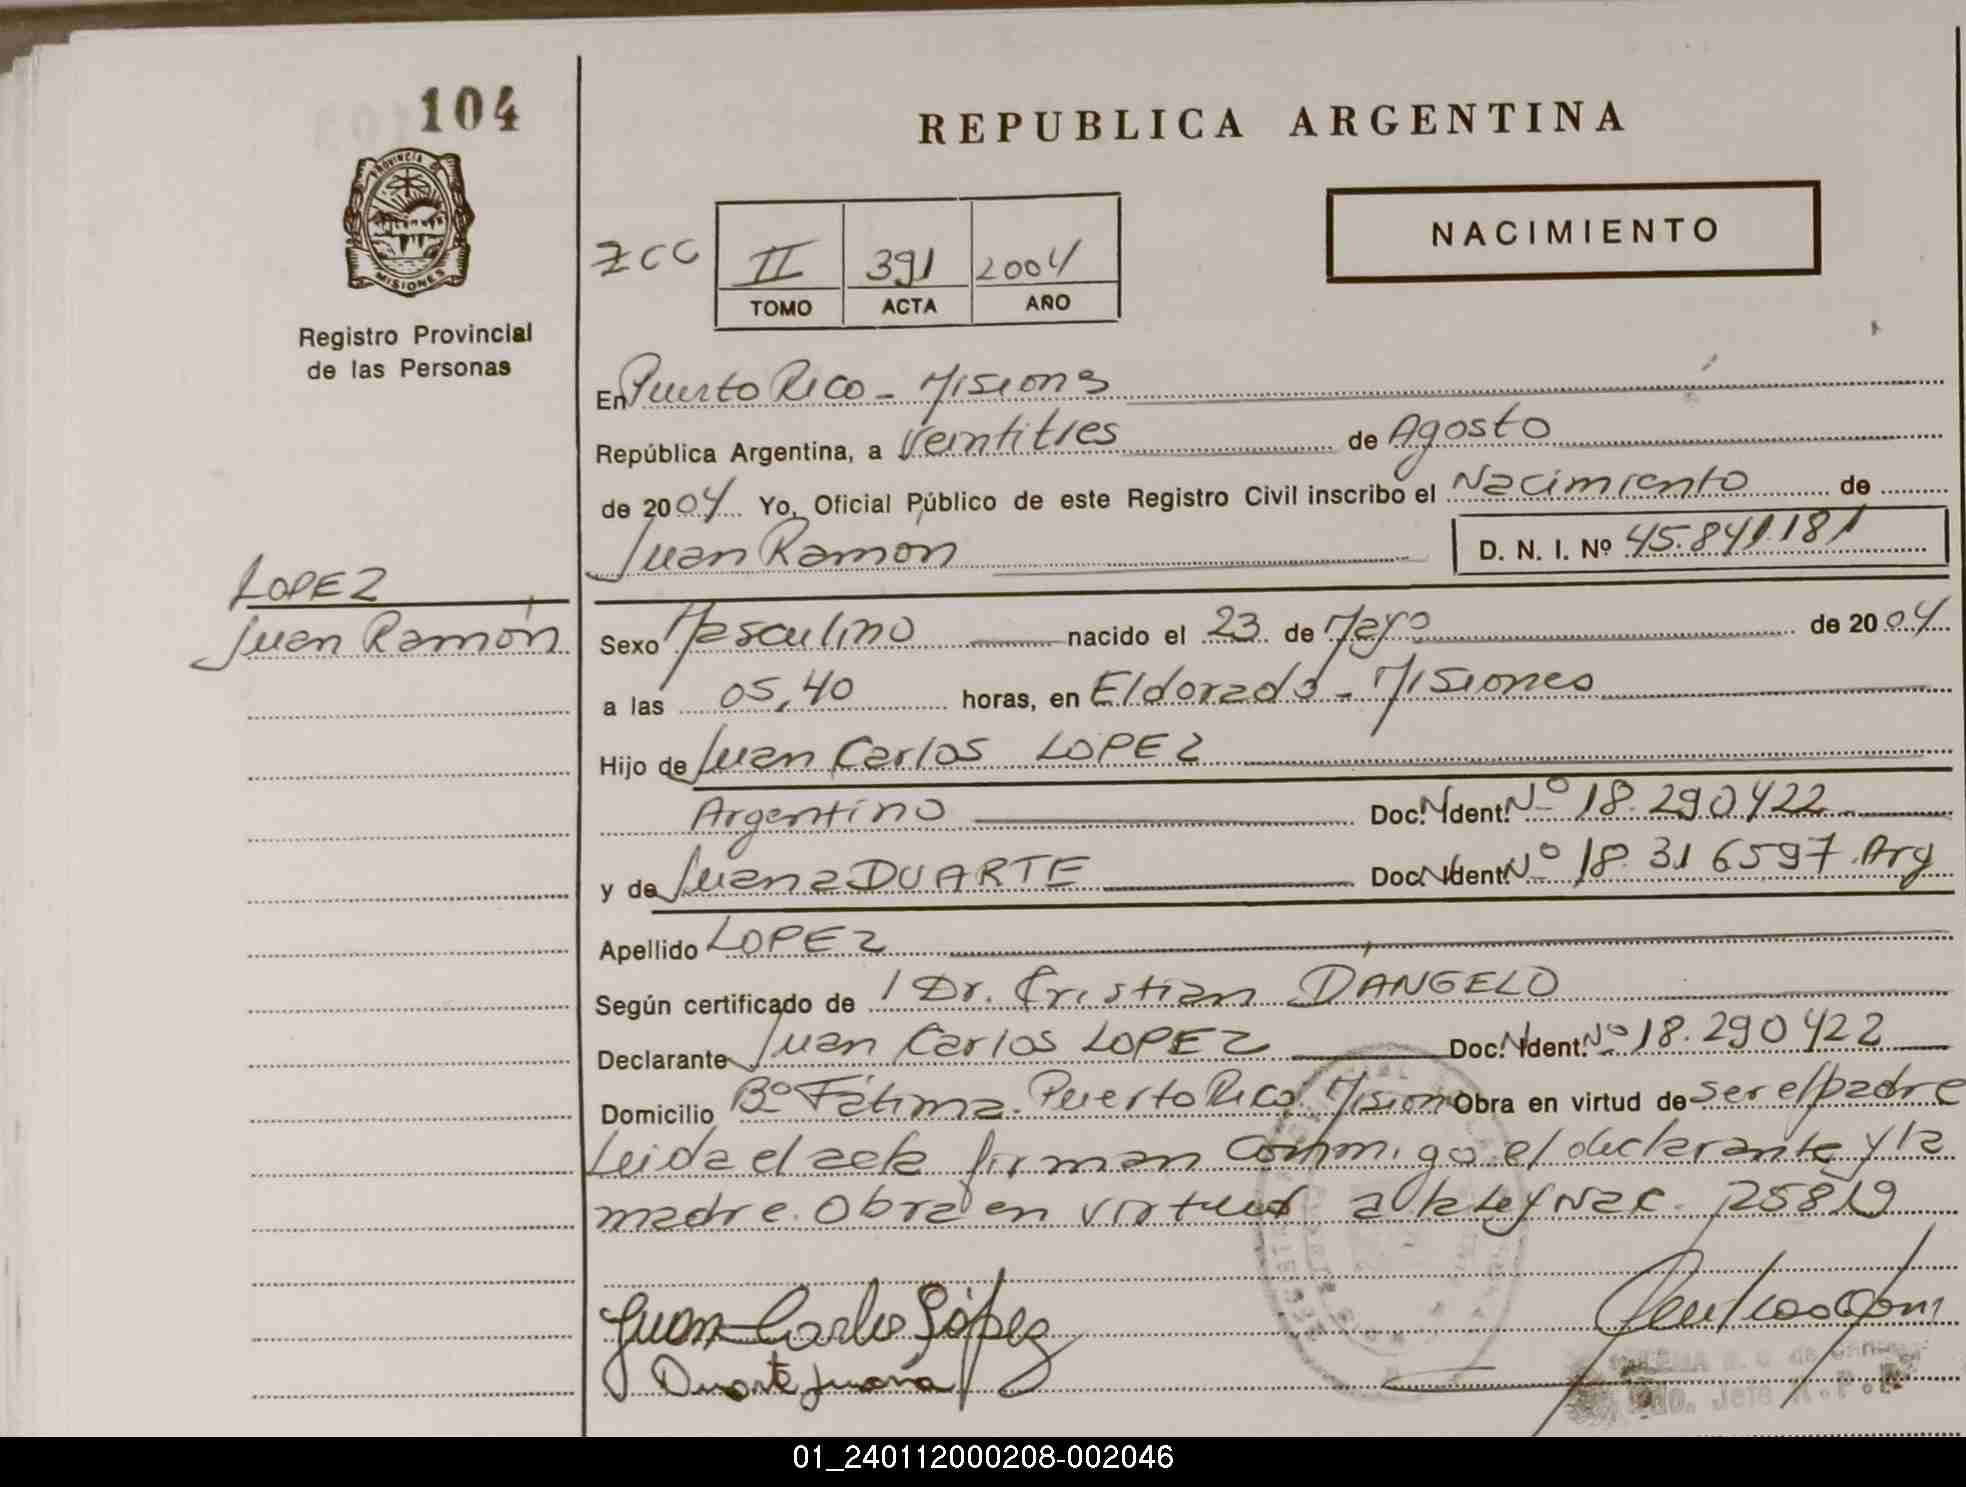 104
PROVINCIA DE
MISIONES
Registro Provincial
de las Personas
REPUBLICA ARGENTINA
NACIMIENTO
ZCC II 391 2004
TOMO ACTA AÑO
En Puerto Rico - Misiones
República Argentina, a Veintitres de Agosto
de 2004 Yo, Oficial Público de este Registro Civil inscribo el Nacimiento de
Juan Ramon D. N. I. Nº 45.841.181
LOPEZ
Juan Ramón
Sexo Masculino nacido el 23 de Mayo de 2004
a las 05,40 horas, en Eldorado - Misiones
Hijo de Juan Carlos LOPEZ
Argentino Doc. N Ident. Nº 18.290422
y de Juana DUARTE Doc. N Ident. Nº 18.316597 Arg
Apellido LOPEZ
Según certificado de Dr. Cristian DÁNGELO
Declarante Juan Carlos LOPEZ Doc. N Ident. Nº 18.290422
Domicilio Bº Fátima. Puerto Rico. Misiones Obra en virtud de ser el padre
Leida el acta firman conmigo el declarante y la
madre. Obra en virtud a la Ley Nac. 25819
Juan Carlos López
Duarte Juana
01_240112000208-002046